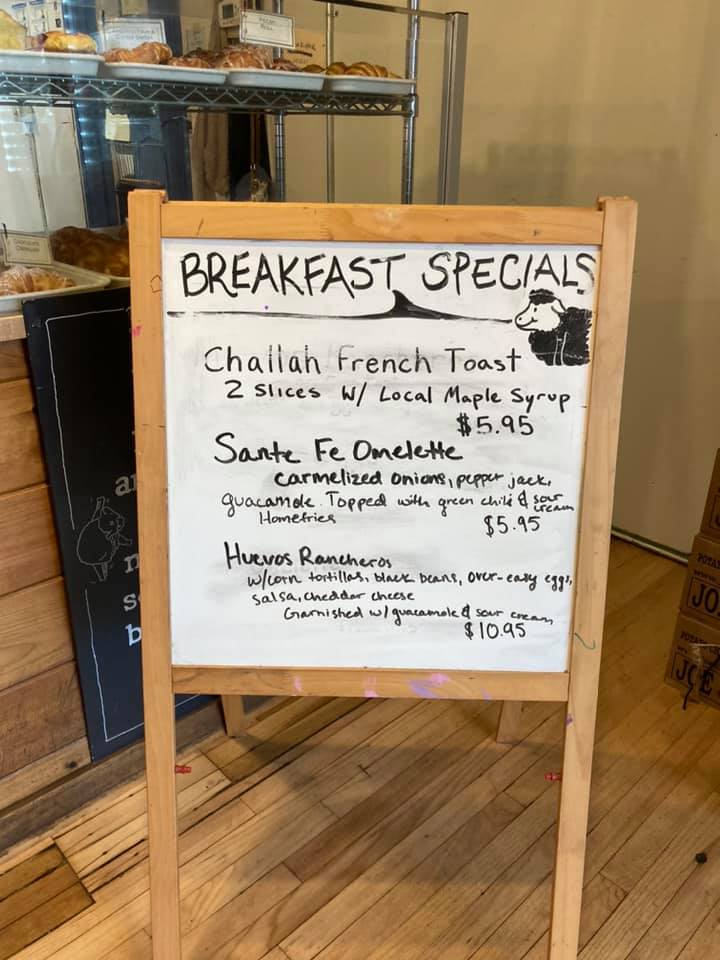 BREAKFAST SPECIALS
Challah French Toast
2 slices w/ Local Maple Syrup
$5.95
Sante Fe Omelette
carmelized onions, pepper jack,
guacamole. Topped with green chili & sour cream
Homefries
$5.95
Huevos Rancheros
w/corn tortillas, black beans, over-easy eggs,
salsa, cheddar cheese
Garnished w/ guacamole & sour cream
$10.95
JO
JOE